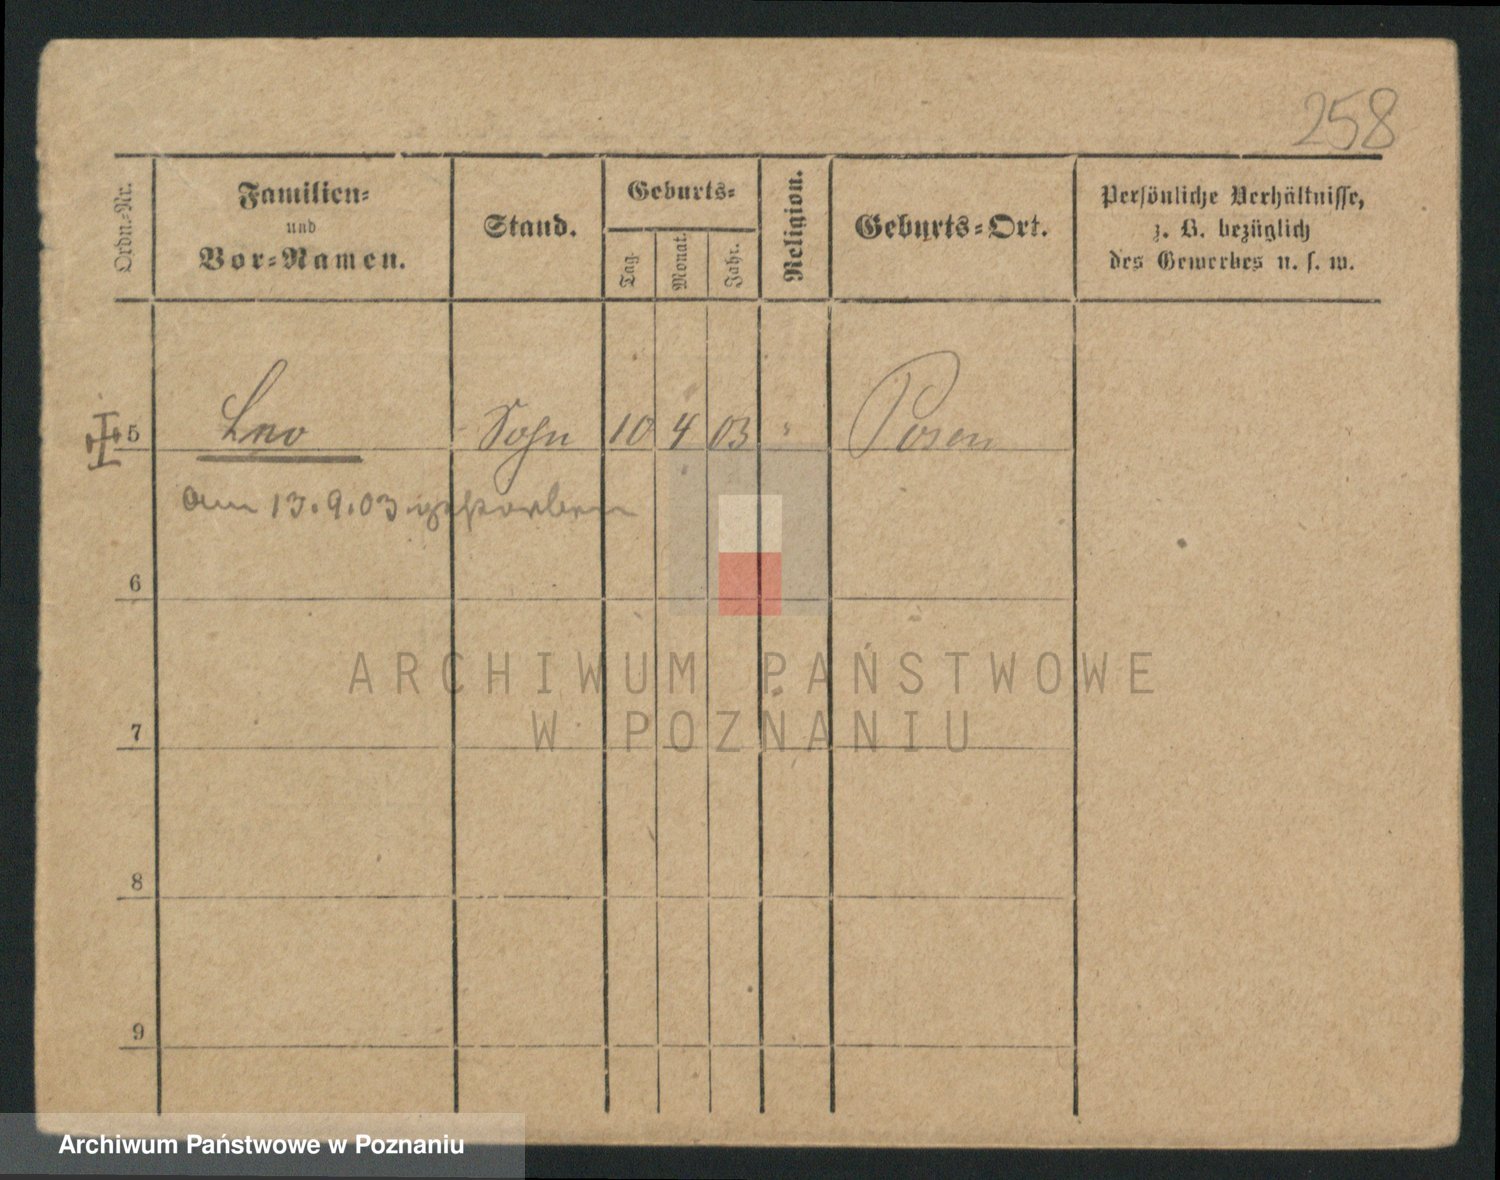 258
Ordn.-Nr.
Familien-
und
Vor-Namen.
Stand.
Geburts-
Tag.
Monat.
Jahr.
Religion.
Geburts-Ort.
Persönliche Verhältnisse,
z. B. bezüglich
des Gewerbes u. s. w.
5 Leo Sohn 10 4 03 " Posen
am 13.9.03 gestorben
6
ARCHIWUM PAŃSTWOWE
W POZNANIU
7
8
9
Archiwum Państwowe w Poznaniu